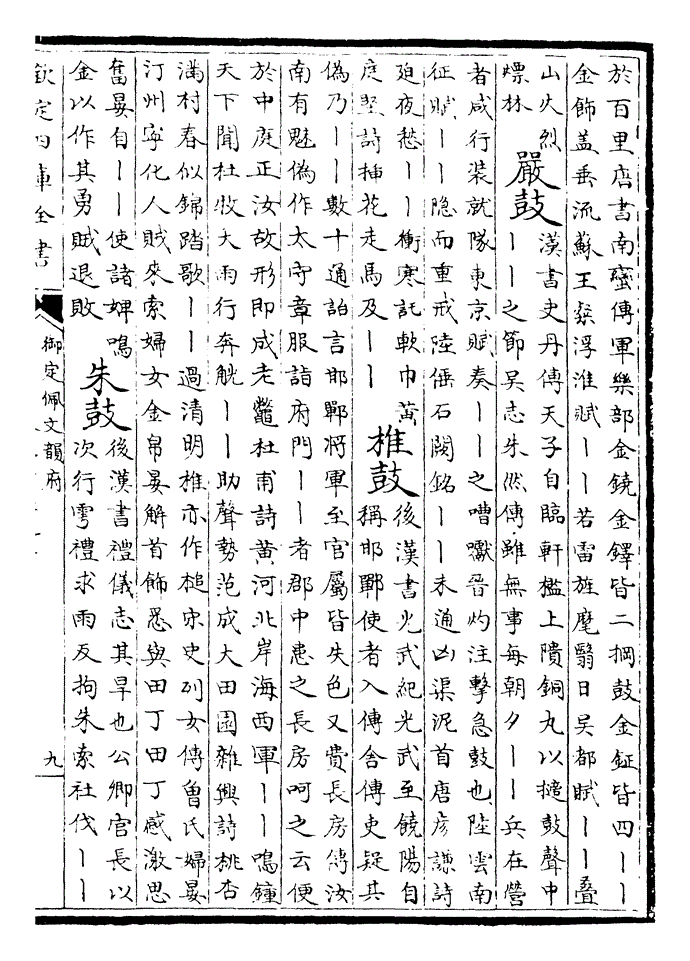 於百里店書南蠻傳軍樂部金鐃金鐸皆二掆鼓金鉦皆四丨丨
金飾盖垂流蘇王粲浮淮賦丨丨若雷旌麾翳日吳都賦丨丨疊
山火烈熛林 嚴鼓 漢書史丹傳天子自臨軒檻上隤銅丸以擿鼓聲中丨丨之節吳志朱然傳雖無事每朝夕丨丨兵在營
者咸行裝就隊東京賦奏丨丨之嘈𡃄晉灼注擊急鼓也陸雲南
征賦丨丨隐而重戒陸倕石闕銘丨丨未通凶渠泥首唐彦謙詩
廹夜愁丨丨衝寒託軟巾黃庭堅詩揷花走馬及丨丨 椎鼓 後漢書光武紀光武至饒陽自稱邯鄲使者入傳舍傳吏疑其
偽乃丨丨數十通詒言邯鄲將軍至官屬皆失色又費長房傳汝
南有魅偽作太守章服詣府門丨丨者郡中患之長房呵之云便
於中庭正汝故形即成老鼈杜甫詩黄河北岸海西軍丨丨鳴鐘
天下聞杜牧大雨行奔觥丨丨助聲勢范成大田園雜興詩桃杏
滿村春似錦踏歌丨丨過清明椎亦作槌宋史列女傳曾氏婦晏
汀州寧化人賊來索婦女金帛晏解首飾悉與田丁田丁感激思
奮晏自丨丨使諸婢鳴金以作其勇賊退敗 朱鼓 後漢書禮儀志其旱也公卿官長以次行雩禮求雨反拘朱索社伐丨丨
欽定四庫全書
御定佩文韻府
九